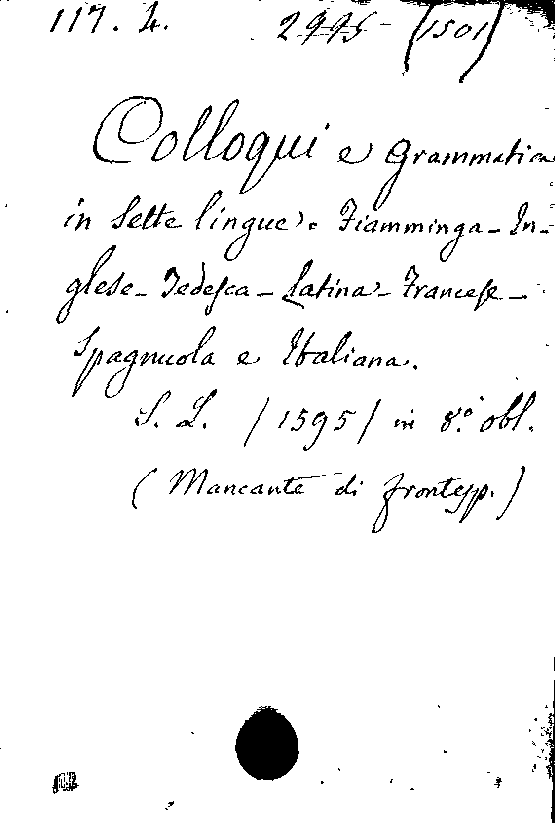 117. 4. 2995 (1501)
Colloqui e Grammatica
in Sette lingue. Fiamminga - In-
glese - Tedesca - Latina - Francese -
Spagnuola e Italiana.
S. L. /1595/ in 8.° obl.
(Mancante di frontesp.)